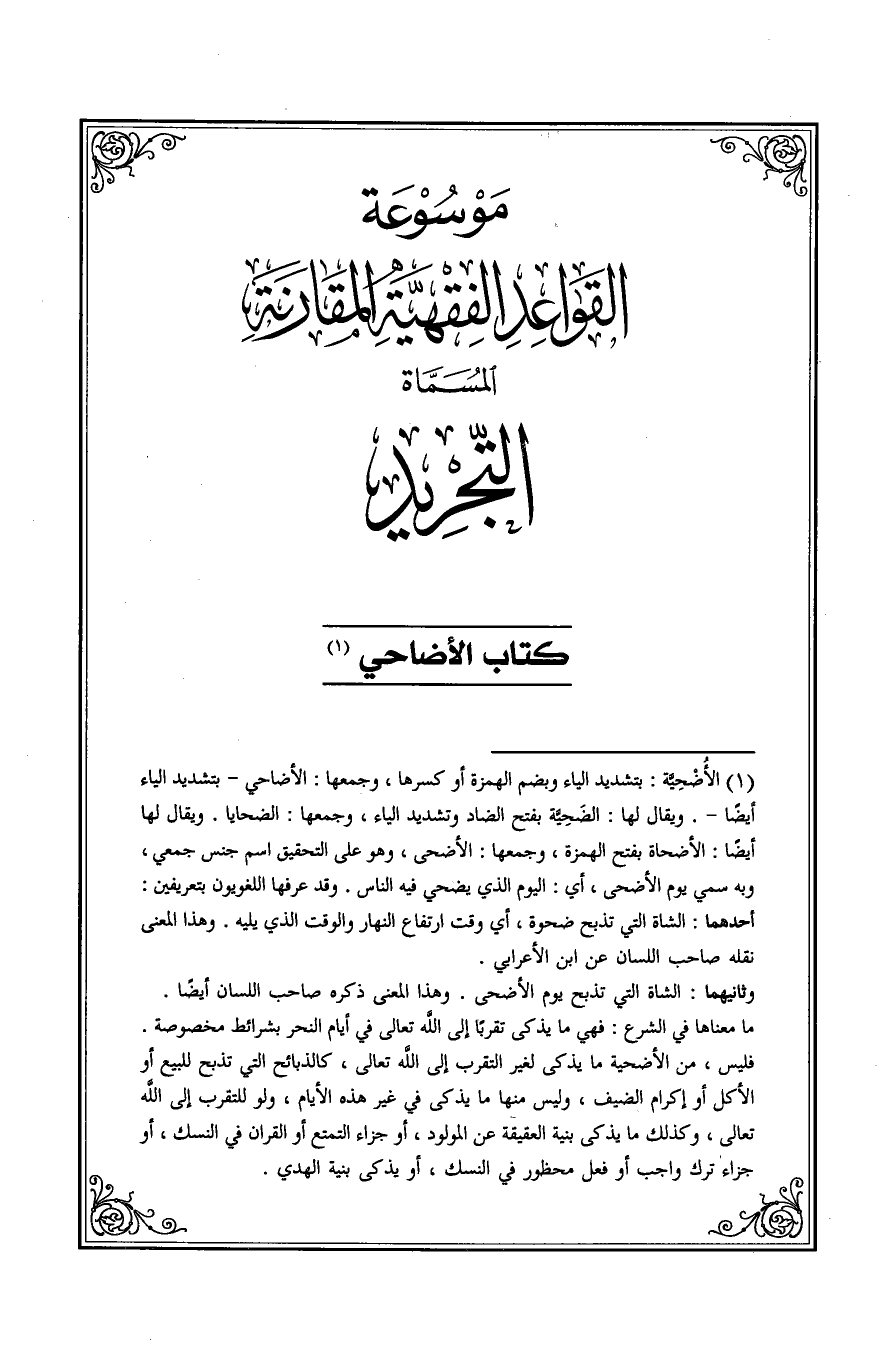 مَوْسُوْعَة
القَوَاعِدِ الفِقْهِيَّةِ المُقَارَنَةِ
المُسَمَّاة
التَّجْرِيد
كتاب الأضاحي (١)
(١) الأُضْحِيَّة : بتشديد الياء وبضم الهمزة أو كسرها ، وجمعها : الأضاحي – بتشديد الياء
أيضًا – . ويقال لها : الضَحِيَّة بفتح الضاد وتشديد الياء ، وجمعها : الضحايا . ويقال لها
أيضًا : الأضحاة بفتح الهمزة ، وجمعها : الأضحى ، وهو على التحقيق اسم جنس جمعي ،
وبه سمي يوم الأضحى ، أي : اليوم الذي يضحي فيه الناس . وقد عرفها اللغويون بتعريفين :
أحدهما : الشاة التي تذبح ضحوة ، أي وقت ارتفاع النهار والوقت الذي يليه . وهذا المعنى
نقله صاحب اللسان عن ابن الأعرابي .
وثانيهما : الشاة التي تذبح يوم الأضحى . وهذا المعنى ذكره صاحب اللسان أيضًا .
ما معناها في الشرع : فهي ما يذكى تقربًا إلى اللَّه تعالى في أيام النحر بشرائط مخصوصة .
فليس ، من الأضحية ما يذكى لغير التقرب إلى اللَّه تعالى ، كالذبائح التي تذبح للبيع أو
الأكل أو إكرام الضيف ، وليس منها ما يذكى في غير هذه الأيام ، ولو للتقرب إلى اللَّه
تعالى ، وكذلك ما يذكى بنية العقيقة عن المولود ، أو جزاء التمتع أو القران في النسك ، أو
جزاء ترك واجب أو فعل محظور في النسك ، أو يذكى بنية الهدي .